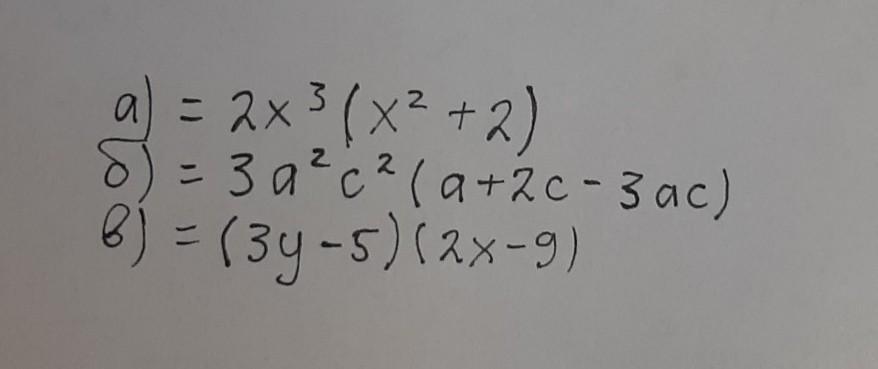 а) = 2x³(x² + 2)
б) = 3a²c²(a + 2c - 3ac)
в) = (3y - 5)(2x - 9)